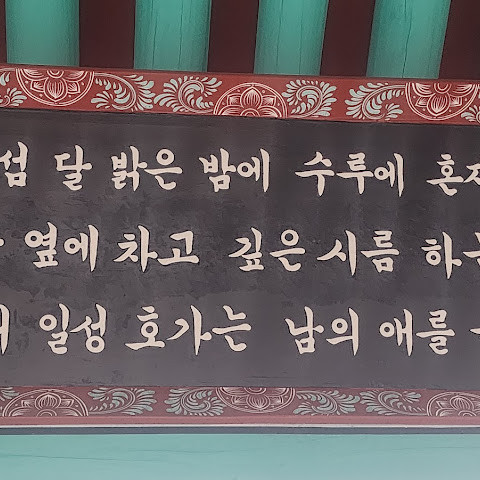 섬 달 밝은 밤에 수루에 혼자
옆에 차고 깊은 시름 하는
일성 호가는 남의 애를